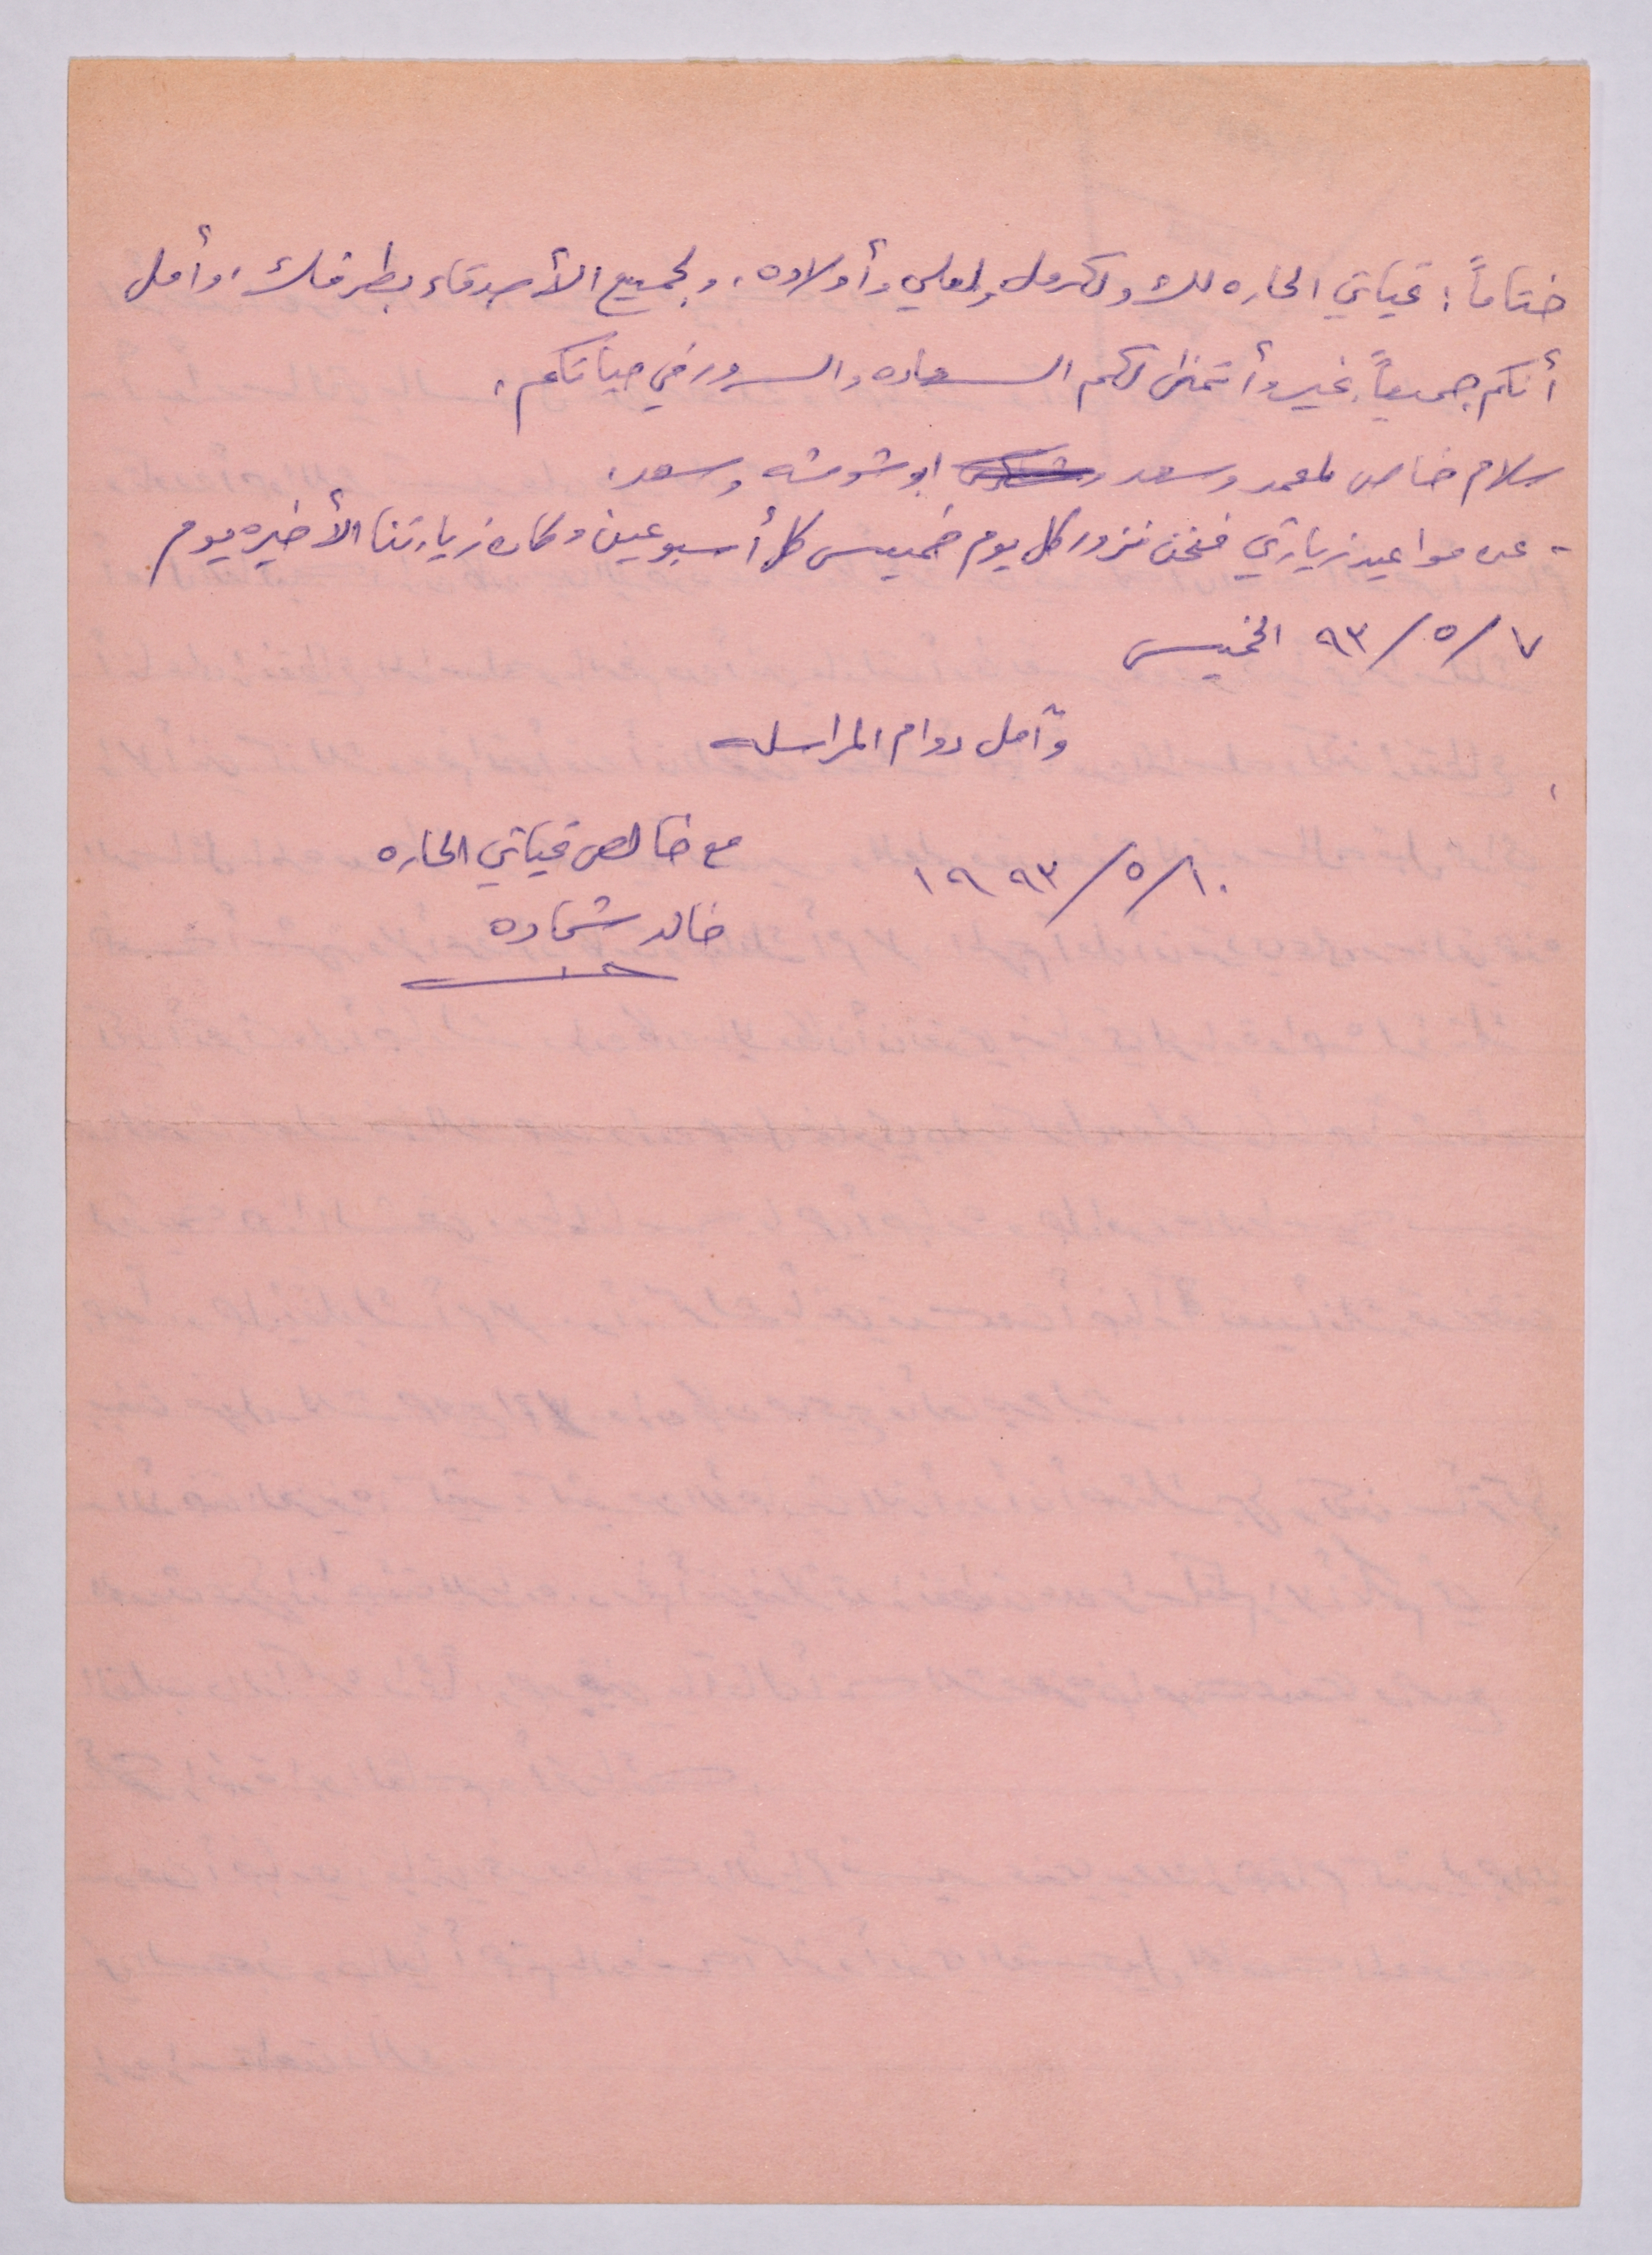 ختاماً: تحياتي الحاره لك ولكرمل ولعلي وأولاده، ولجميع الأصدقاء بطرفك، وأمل
أنكم جميعاً بخير وأتمنى لكم السعاده والسرور في حياتكم،
سلام خاص لمحمد وسعد ابو شوشه وسعد،
- عن مواعيد زيارتي فنحن نزور كل يوم خميس كل أسبوعين وكان زيارتنا الأخيره يوم
٧/٥/٩٣ الخميس
وآمل دوام المراسله
مع خالص تحياتي الحاره
١٠/٥/١٩٩٣
خالد شحاده